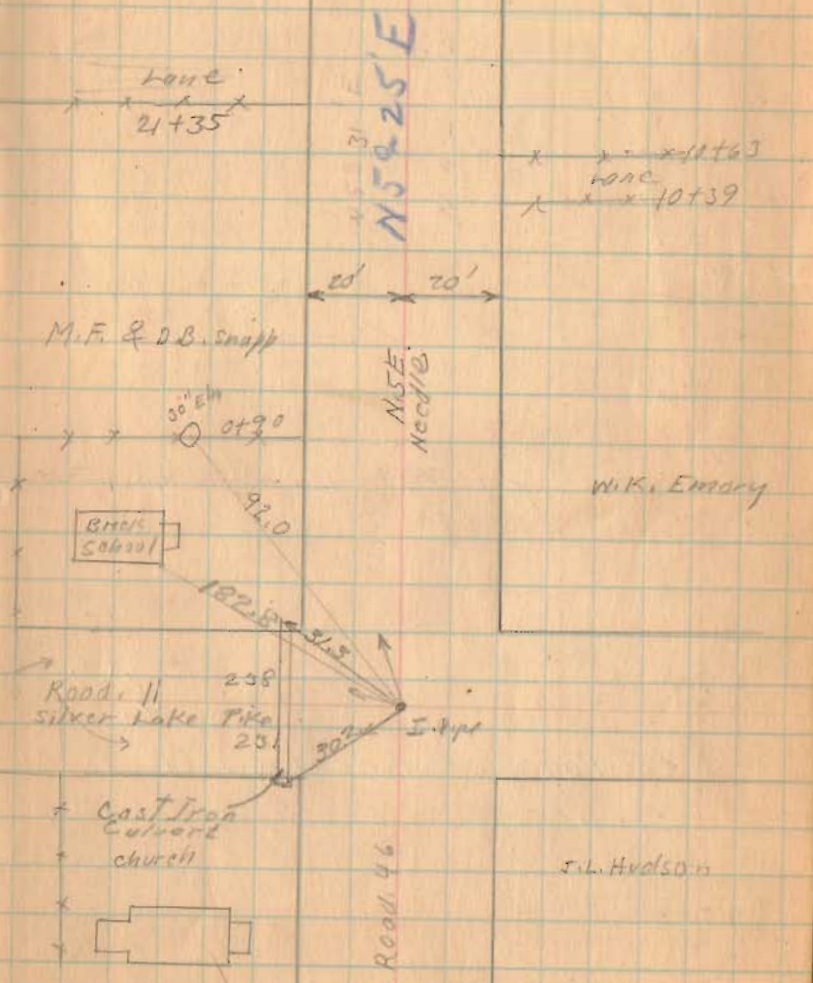 N 5° 25' E
Lane
21+35
x 10+63
Lane
10+39
20' 20'
M.F. & D.B. Snapp
N.5E.
Needle
30" Elm
0+90
W.K. Emory
92.0
Brick
School
182.8
31.3
Road. 11
Silver Lake Pike
238
231
30.2
I. Pipe
Cast Iron
Culvert
church
Road. 46
J.L. Hudson